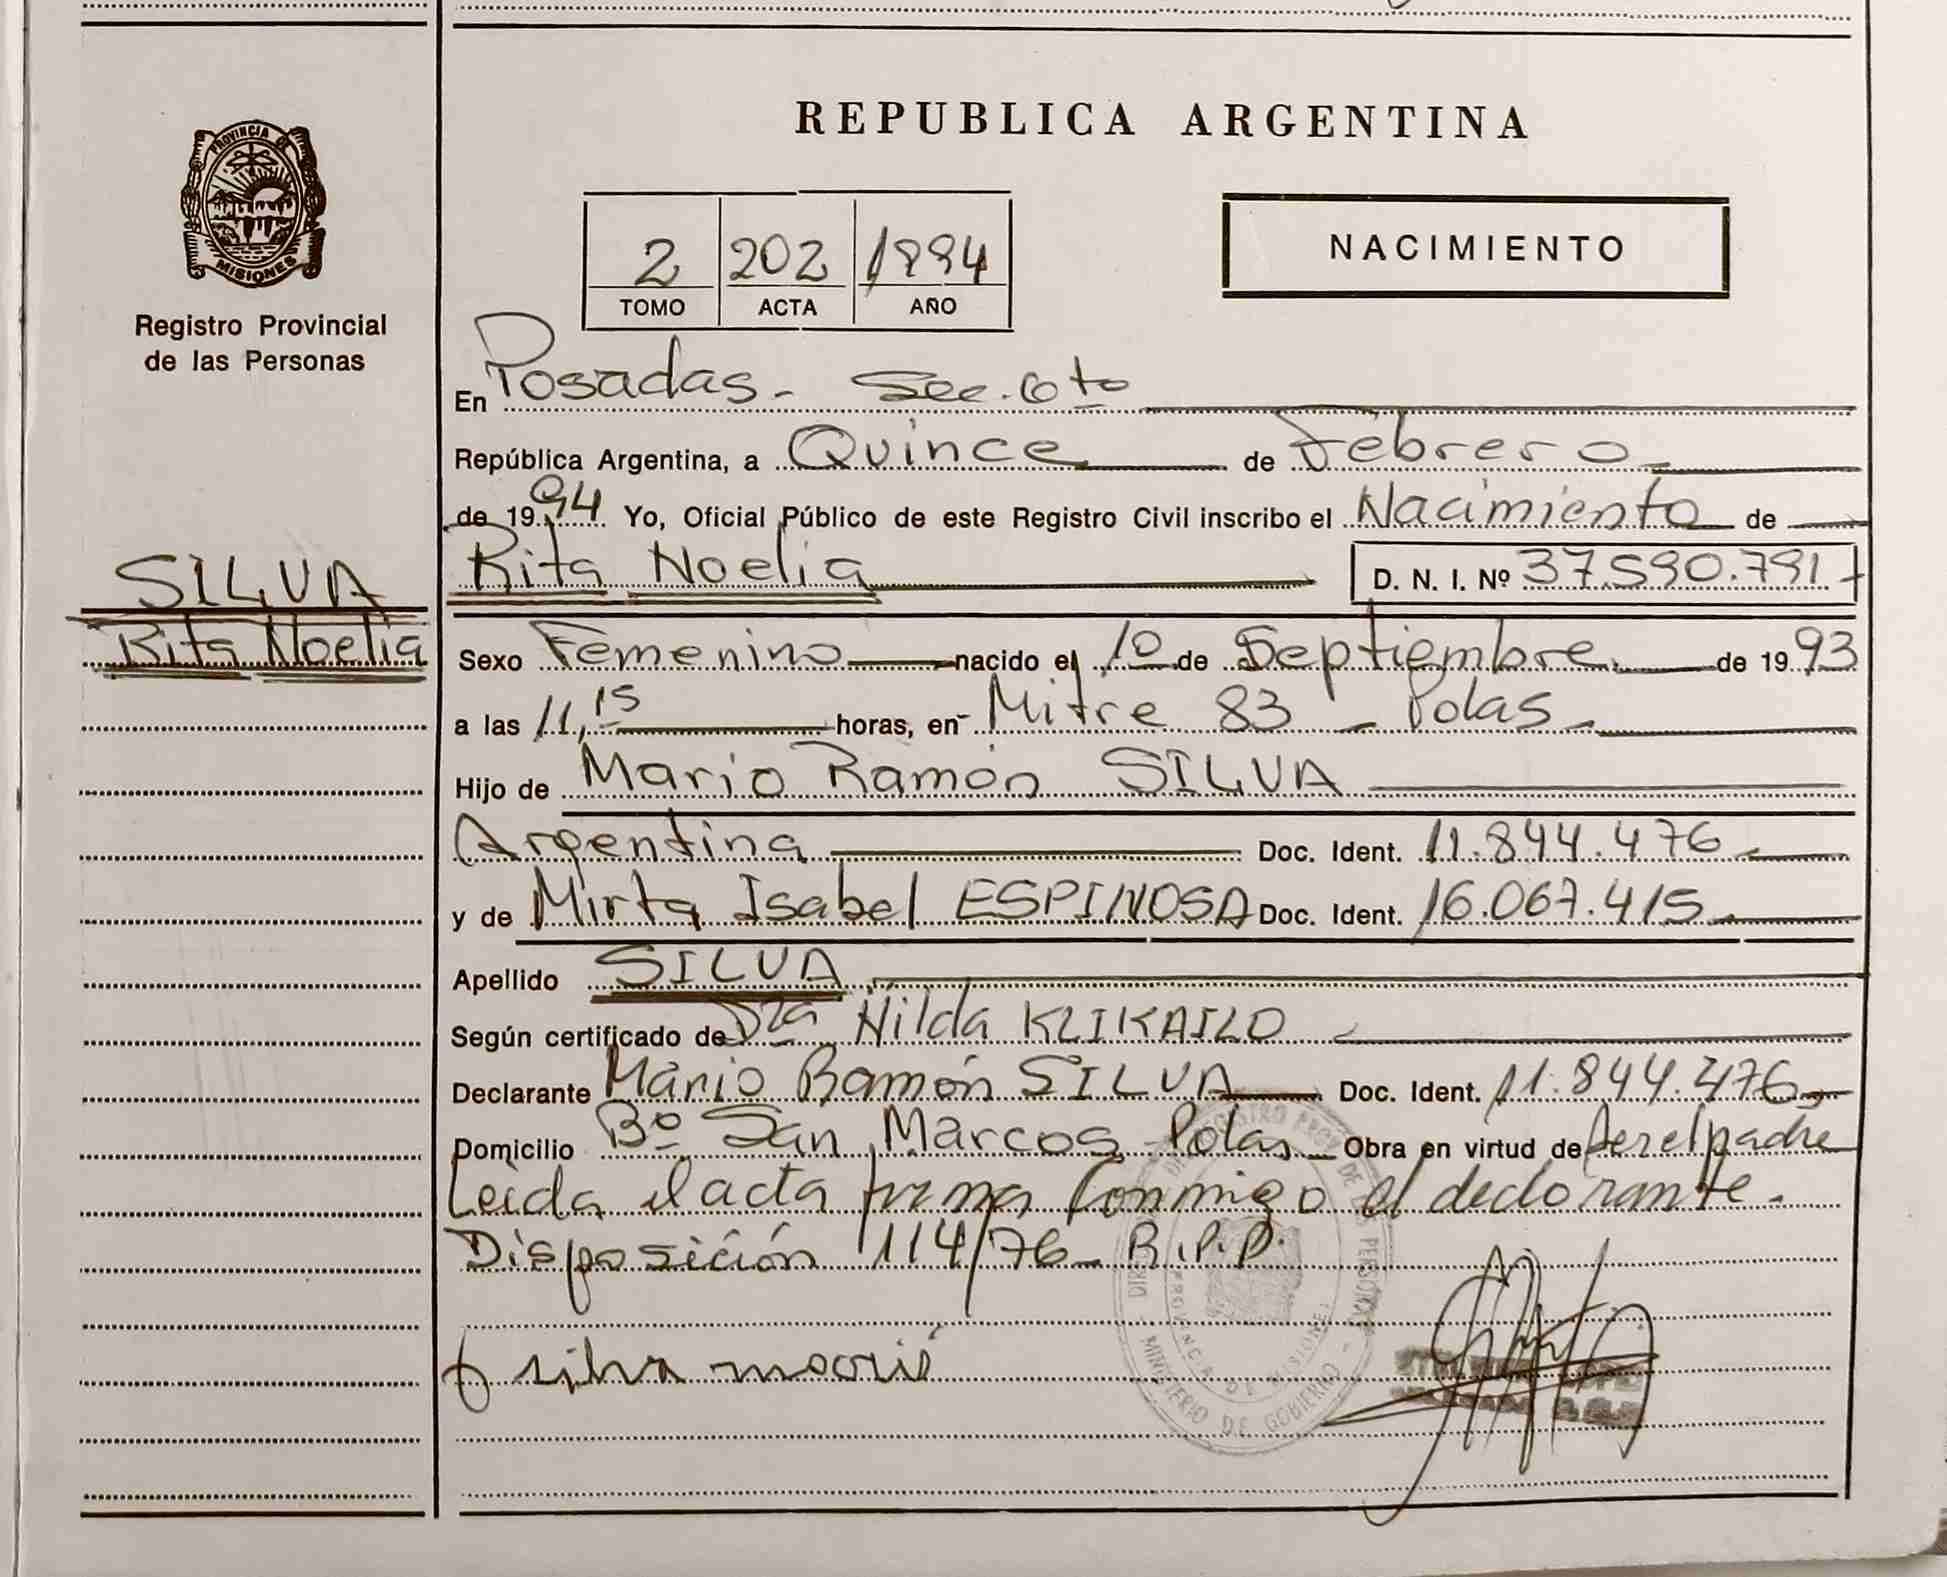 REPUBLICA ARGENTINA
PROVINCIA D
MISIONES
Registro Provincial
de las Personas
2 202 1994
TOMO ACTA AÑO
NACIMIENTO
En Posadas - Sec. 6to
República Argentina, a Quince de Febrero
de 1994 Yo, Oficial Público de este Registro Civil inscribo el Nacimiento de
SILVA
Rita Noelia
Rita Noelia D. N. I. Nº 37.590.791
Sexo Femenino nacido el 10 de Septiembre de 1993
a las 11,15 horas, en Mitre 83 - Pdas -
Hijo de Mario Ramón SILVA
Argentina Doc. Ident. 11.844.476
y de Mirta Isabel ESPINOSA Doc. Ident. 16.067.415
Apellido SILVA
Según certificado de Dra Nilda KLIKAILO
Declarante Mario Ramón SILVA Doc. Ident. 11.844.476
Domicilio Bº San Marcos - Pdas Obra en virtud de ser el padre
Leida el acta firma conmigo el declarante.
Disposición 114/76 - R.P.P.
silva mario
MINISTERIO DE GOBIERNO
PROVINCIA DE MISIONES